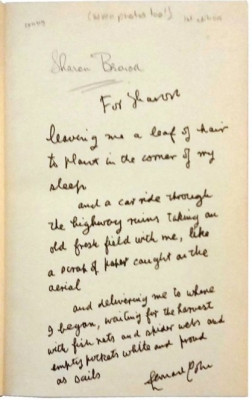 1st edition
Sharon Brown
For Sharon
leaving me a leaf of hair
to plant in the corner of my
sleep
and a car ride through
the highway ruins taking an
old fresh field with me, like
a scrap of paper caught on the
aerial
and delivering me to where
I began, waiting for the harvest
with fish nets and spider webs and
empty pockets white and proud
as sails